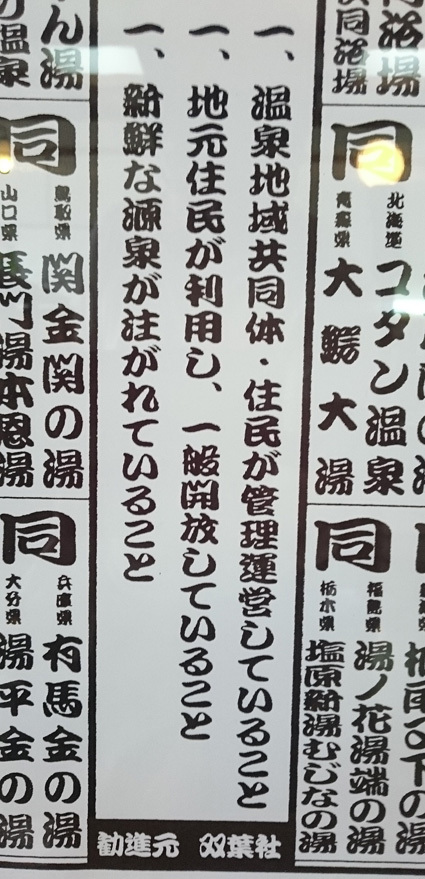 同浴場
共同浴場
同
北海道
コタン温泉
青森県
大鰐大湯
同
福島県
湯ノ花湯端の湯
栃木県
塩原新湯むじなの湯
一、温泉地域共同体・住民が管理運営していること
一、地元住民が利用し、一般開放していること
一、新鮮な源泉が注がれていること
勧進元 双葉社
ん湯
の温泉
同
鳥取県
関金関の湯
山口県
長門湯本恩湯
同
兵庫県
有馬金の湯
大分県
湯平金の湯